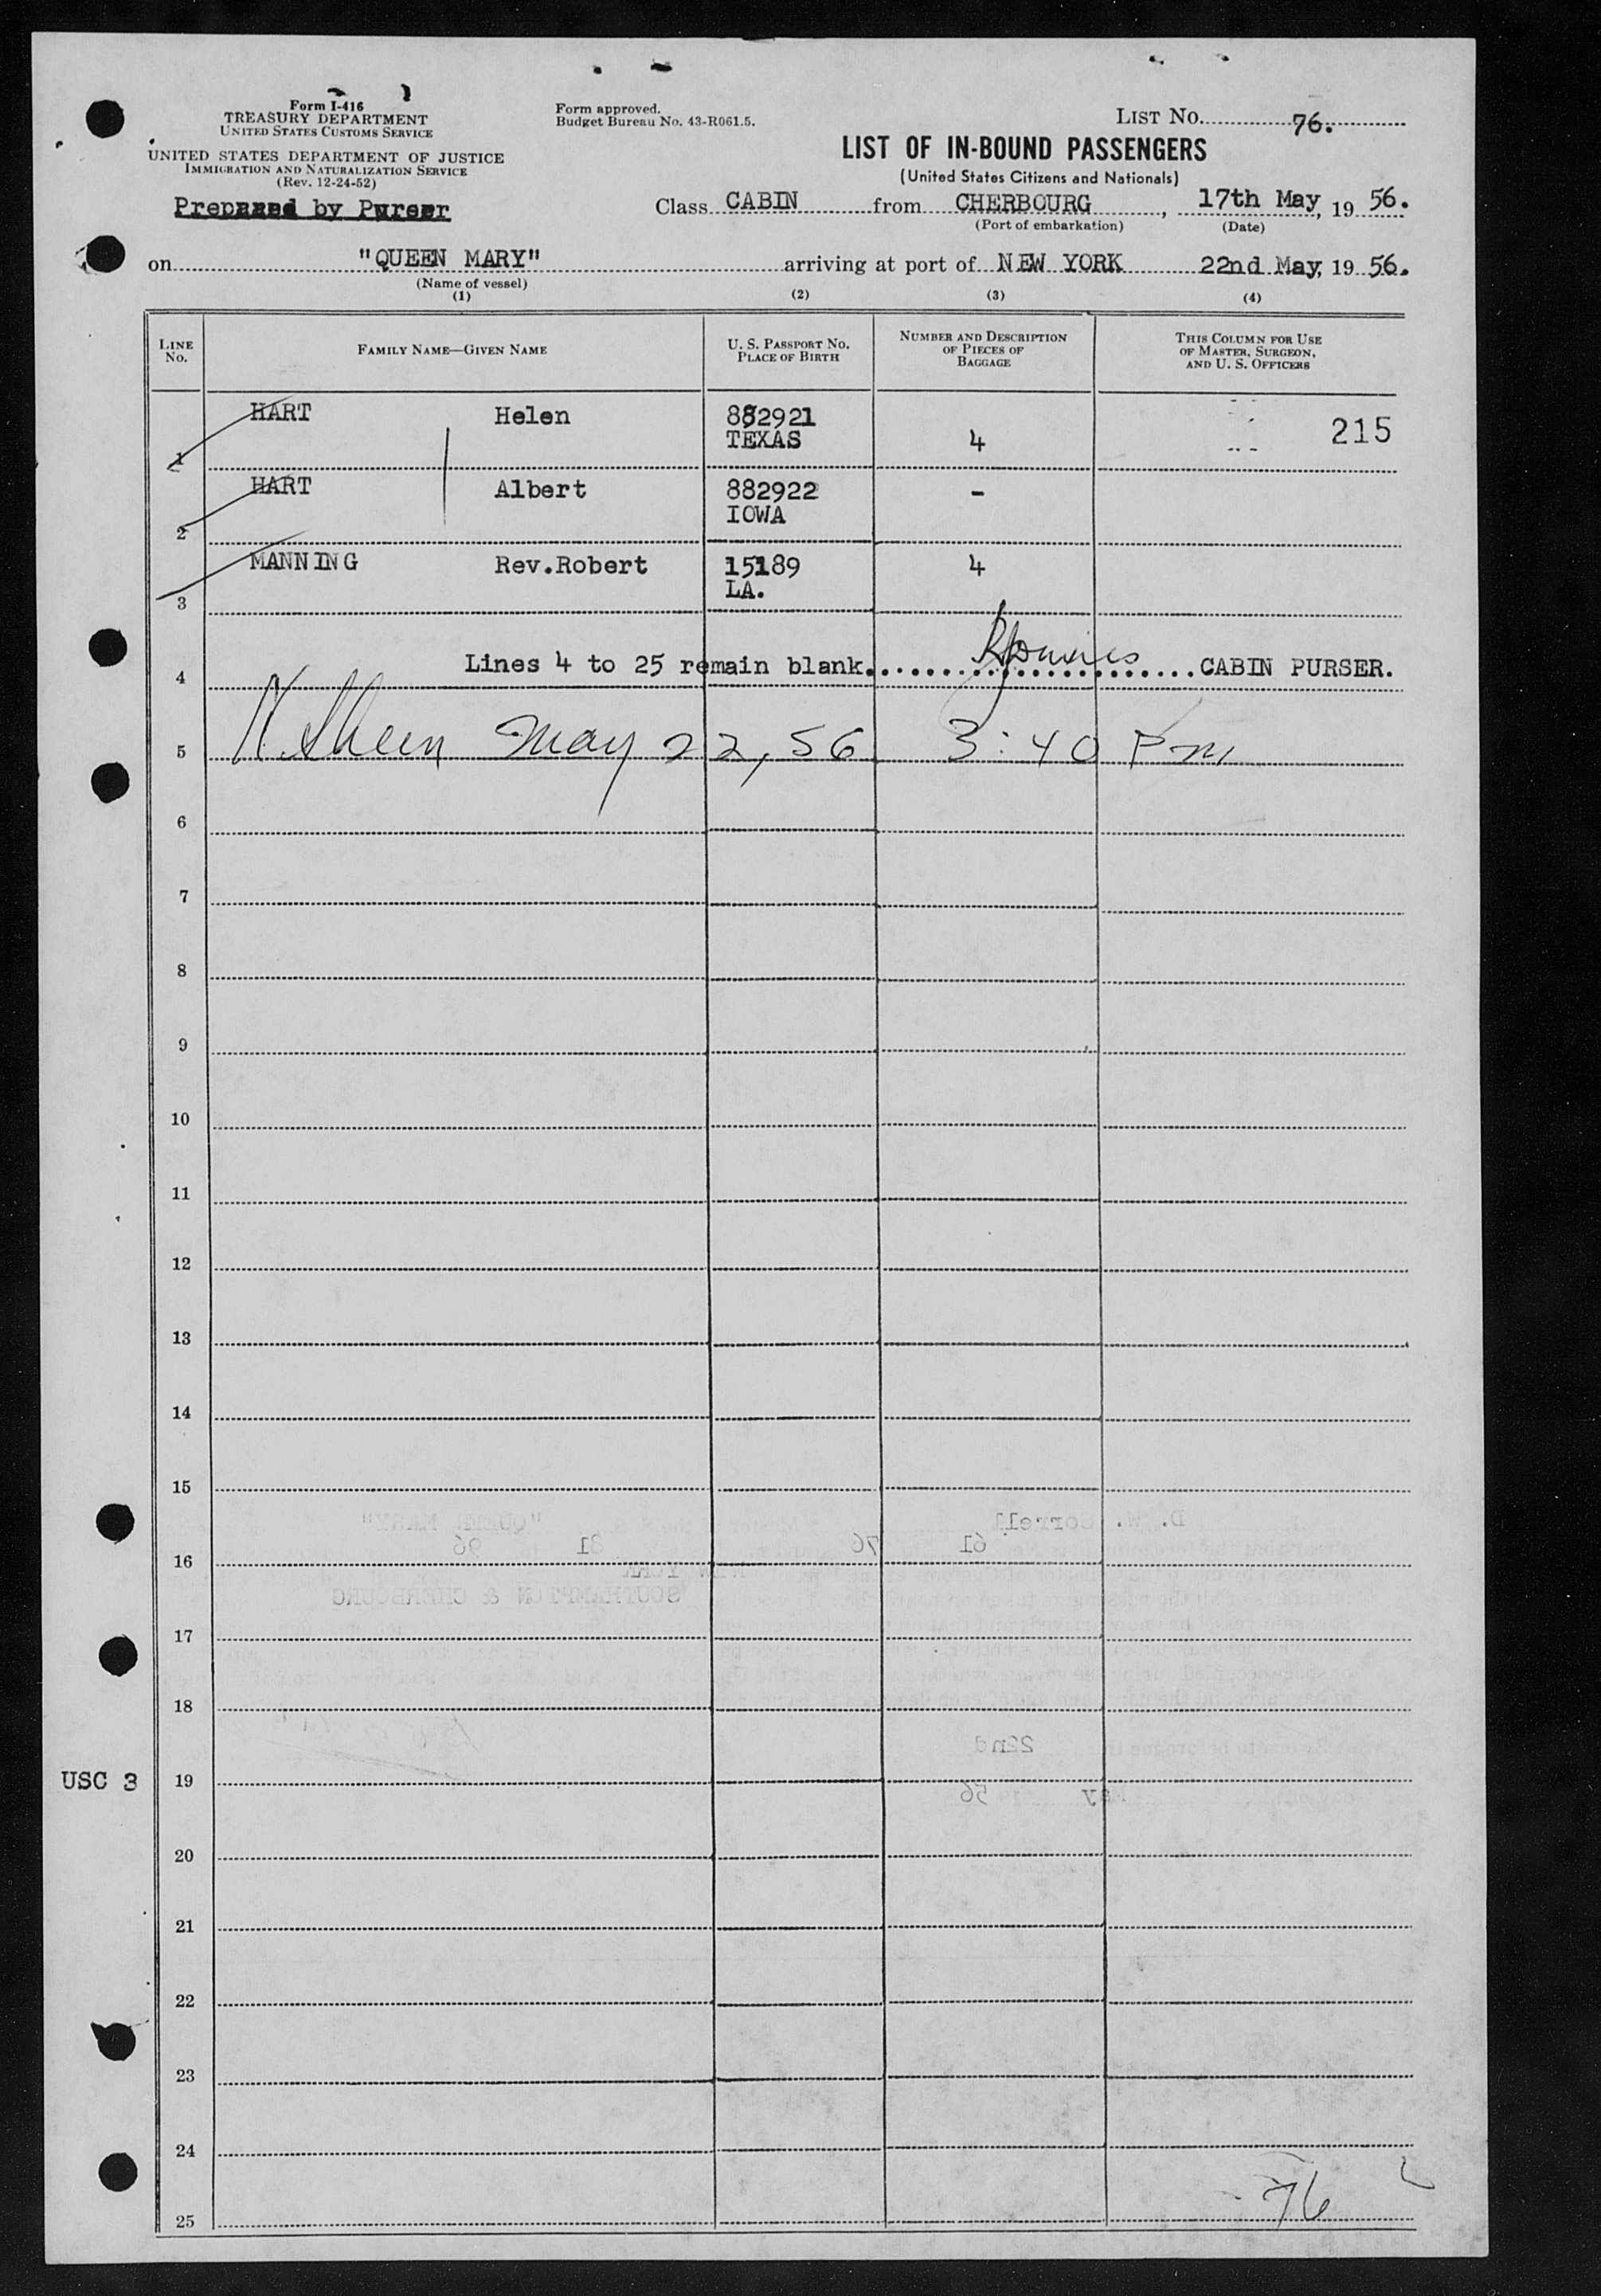 Form I-416
TREASURY DEPARTMENT
UNITED STATES CUSTOMS SERVICE
UNITED STATES DEPARTMENT OF JUSTICE
IMMIGRATION AND NATURALIZATION SERVICE
(Rev. 12-24-52)
Prepared by Purser
Form approved.
Budget Bureau No. 43-R061.5.
LIST No. 76.
LIST OF IN-BOUND PASSENGERS
(United States Citizens and Nationals)
Class CABIN from CHERBOURG, 17th May, 19 56.
(Port of embarkation) (Date)
on "QUEEN MARY" arriving at port of NEW YORK 22nd May, 19 56.
(Name of vessel)
(1) (2) (3) (4)
LINE No. FAMILY NAME—GIVEN NAME U. S. PASSPORT NO. PLACE OF BIRTH NUMBER AND DESCRIPTION OF PIECES OF BAGGAGE THIS COLUMN FOR USE OF MASTER, SURGEON, AND U. S. OFFICERS
HART Helen 882921 215
1 TEXAS 4
HART Albert 882922 -
2 IOWA
MANNING Rev.Robert 15189 4
3 LA.
4 Lines 4 to 25 remain blank. CABIN PURSER.
5 May 22, 56 3:40 Pm
6
7
8
9
10
11
12
13
14
15
"QUEEN MARY" D. W. Sorrell
16 96 81 76 61
NEW YORK
SOUTHAMPTON & CHERBOURG
17
18
22nd
USC 3 19
May 56
20
21
22
23
24
76
25